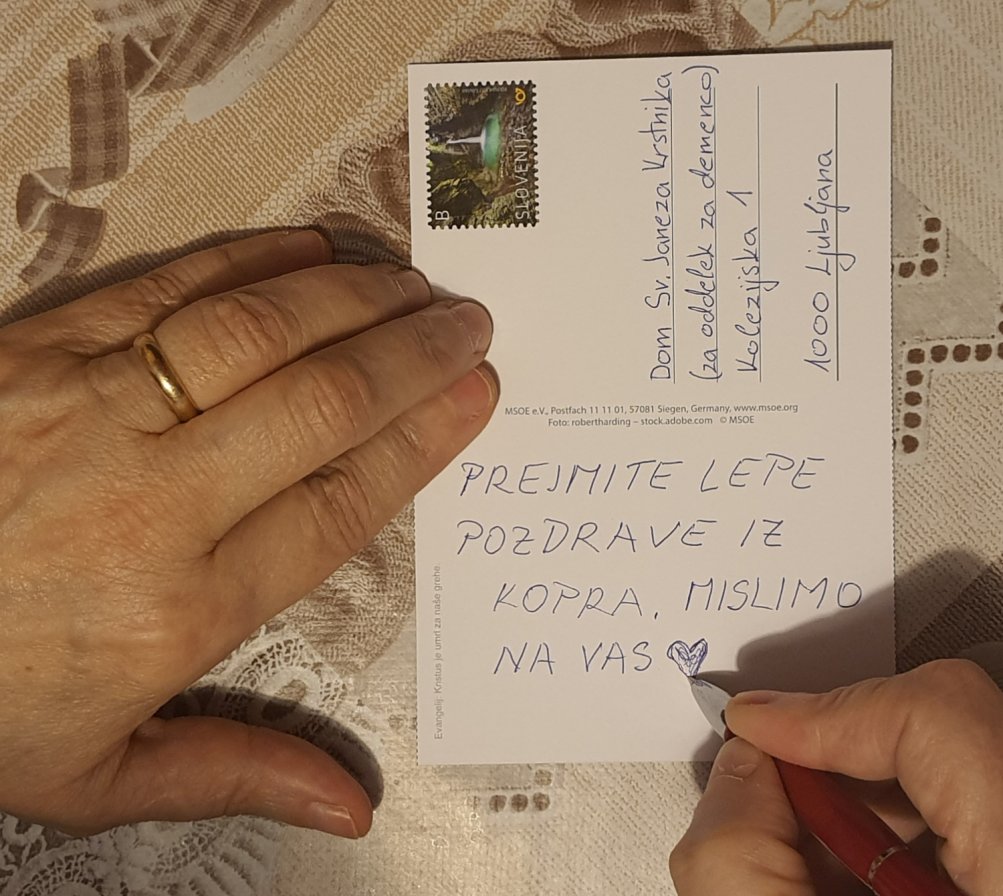 B
SLOVENIJA
Dom Sv. Janeza Krstnika
(za oddelek za demenco)
Kolezijska 1
1000 Ljubljana
MSOE e.V., Postfach 11 11 01, 57081 Siegen, Germany, www.msoe.org
Foto: robertharding – stock.adobe.com © MSOE
PREJMITE LEPE
POZDRAVE IZ
KOPRA. MISLIMO
NA VAS
Evangelij: Kristus je umrl za naše grehe.